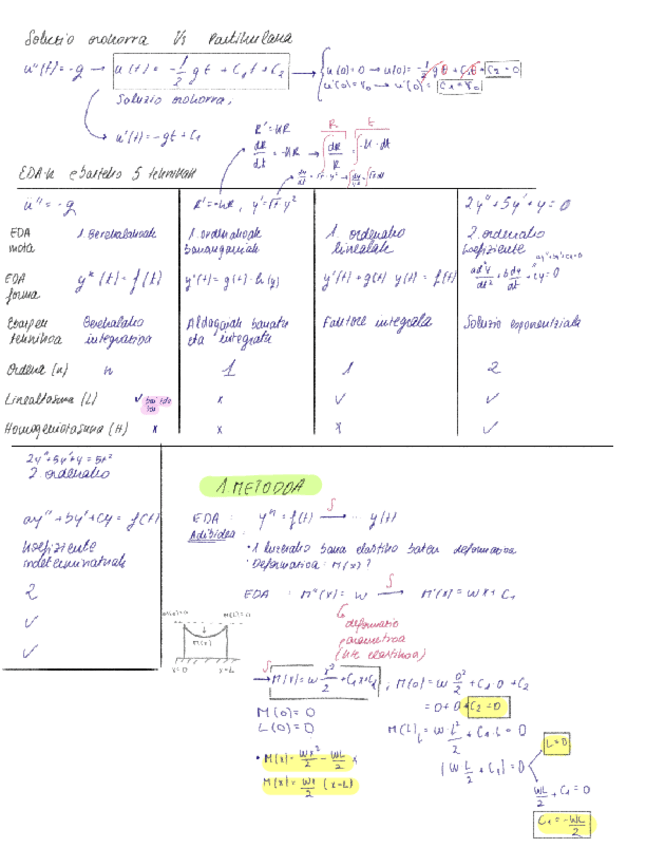 Soluzio orokorra Vs Partikularra
u''(t) = -g → u(t) = -1/2 g t + C₁t + C₂ → { u(0) = 0 → u(0) = -1/2 g 0 + C₁0 + C₂ = 0
u'(0) = v₀ → u'(0) = C₁ = v₀
Soluzio orokorra,
u'(t) = -gt + C₁
R' = -kR
R t
dR/dt = -kR → ∫ dR/R = ∫ -k · dt
EDA-k ebazteko 5 teknikak
u'' = -g R' = -kR, y' = √t y² 2y'' + 5y' + y = 0
EDA mota 1. Berehalakoak 1. ordenakoak banangarriak 1. ordenako linealak 2. ordenako koefiziente
ay''+by'+cy=0
EDA forma yⁿ(t) = f(t) y'(t) = g(t) · h(y) y'(t) + g(t) y(t) = f(t) a d²y/dt² + b dy/dt + cy = 0
Ebazpen teknikoa Berehalako integrazioa Aldagaiak banatu eta integratu Faktore integrala Soluzio esponentziala
Ordena (n) n 1 1 2
Linealtasuna (L) ✓ x ✓ ✓
Homogeniotasuna (H) x x x ✓
2y''+5y'+y = 5t²
2. ordenako
ay'' + by' + cy = f(t)
koefiziente indeterminatuak
2
✓
✓
1. METODOA
EDA : yⁿ = f(t) ∫→ ... y(t)
Adibidea :
· 1 luzerako barra elastiko baten deformazioa
· Deformazioa : M(x) ?
EDA : M''(x) = w ∫→ M'(x) = wx + C₁
deformazio parametroa
(kte elastikoa)
M(0)=0 M(L)=0
M(x)
x=0 x=L
∫→ M(x) = w x²/2 + C₁x + C₂ ; M(0) = w 0²/2 + C₁·0 + C₂
= 0 + 0 + C₂ = 0
M(0) = 0
L(0) = 0
M(L) = w L²/2 + C₁·L = 0
L = 0
(w L/2 + C₁) = 0
wL/2 + C₁ = 0
C₁ = -wL/2
· M(x) = wx²/2 - wL/2 x
M(x) = wx/2 (x-L)